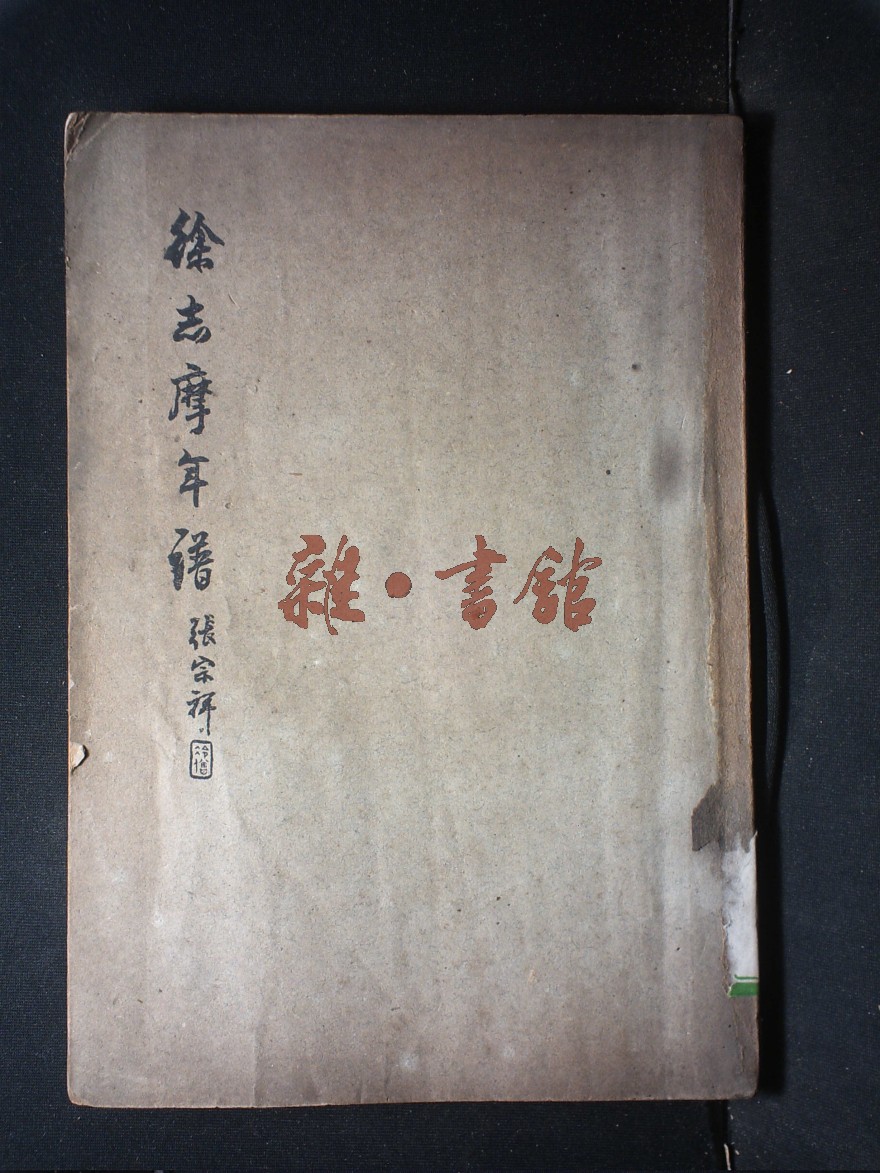 徐志摩年譜
張宗祥
冷僧
雜·書館